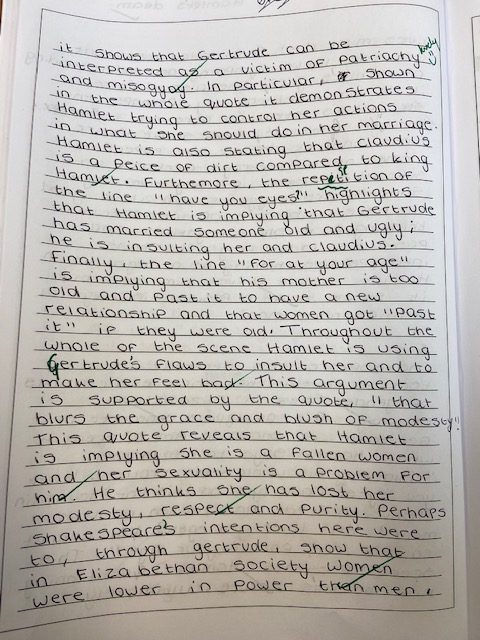 it shows that Gertrude can be
interpreted as a victim of patriachy
and misogyoy. In particular, shown
in the whole quote it demonstrates
Hamlet trying to control her actions
in what she should do in her marriage.
Hamlet is also stating that claudius
is a peice of dirt compared to king
Hamlet. Furthermore, the repetition of
the line "have you eyes?" highlights
that Hamlet is implying that Gertrude
has married someone old and ugly;
he is insulting her and claudius.
Finally, the line "For at your age"
is implying that his mother is too
old and past it to have a new
relationship and that women got "past
it" if they were old. Throughout the
whole of the scene Hamlet is using
Gertrude's flaws to insult her and to
make her feel bad. This argument
is supported by the quote, "that
blurs the grace and blush of modesty"
This quote reveals that Hamlet
is implying she is a fallen women
and her sexuality is a problem for
him. He thinks she has lost her
modesty, respect and purity. Perhaps
Shakespeare's intentions here were
to, through gertrude, show that
in Elizabethan society women
were lower in power than men.